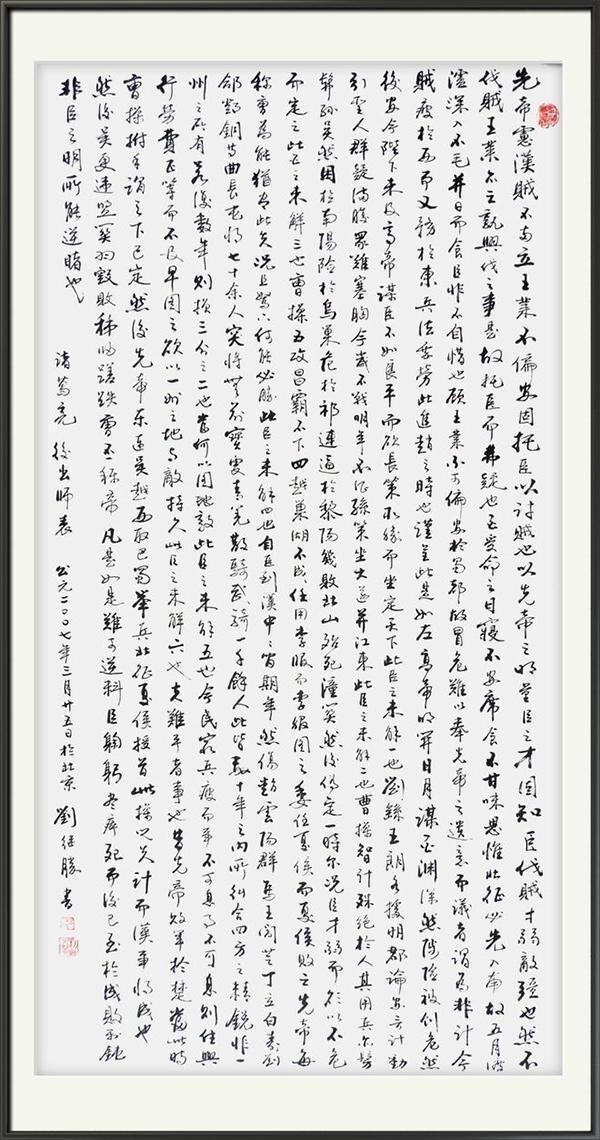 先帝慮漢賊不兩立王業不偏安因托臣以討賊也以先帝之明量臣之才固知臣伐賊才弱敵強也然不
伐賊王業亦亡孰與伐之事是故托臣而弗疑也臣受命之日寢不安席食不甘味思惟北征必先入南故五月渡
瀘深入不毛并日而食臣非不自惜也顧王業不可偏安於蜀都故冒危難以奉先帝之遺意而議者謂為非計今
賊疲於西而又務於東兵法乘勞此進趨之時也謹呈此事如左高帝明并日月謀臣淵深然涉險被創危然
後安今陛下未及高帝謀臣不如良平而欲長策取勝而坐定天下此臣之未解一也劉繇王朗各據明郡論安言計動
引聖人群疑滿腹眾難塞胸今歲不戰明年不征孫策坐大遂并江東此臣之未解二也曹操智計殊絕於人其用兵亦
孫吳然困於南陽險於烏巢危於祁連逼於黎陽幾敗北山殆死潼關然後偽定一時爾況臣才弱而欲以不危
而定之此臣之未解三也曹操五攻昌霸不下四越巢湖不成任用李服而李服圖之委任夏侯而夏侯敗亡先帝每
稱曹為能猶有此失況臣駑下何能必勝此臣之未解四也自臣到漢中之間期年然傷趙雲陽群馬玉閻芝丁立白壽劉
郃鄧銅等曲長屯將七十余人突將無前賓叟青羌散騎武騎一千餘人此皆數十年之內所糾合四方之精銳非一
州之所有若復數年則損三分之二也當何以圖敵此臣之未解五也今民窮兵疲而事不可息事不可息則住與
行勞費正等而不及早圖之欲以一州之地與敵持久此臣之未解六也夫難平者事也昔先帝敗軍於楚當此時
曹操拊手謂天下已定然後先帝東連吳越西取巴蜀舉兵北征夏侯授首此操之失計而漢事將成也
然後吳更違盟關羽毀敗秭歸蹉跌曹丕稱帝凡事如是難可逆料臣鞠躬盡瘁死而後已至於成敗利鈍
非臣之明所能逆睹也
諸葛亮後出師表 公元二〇〇七年三月廿五日於北京 劉繼勝書